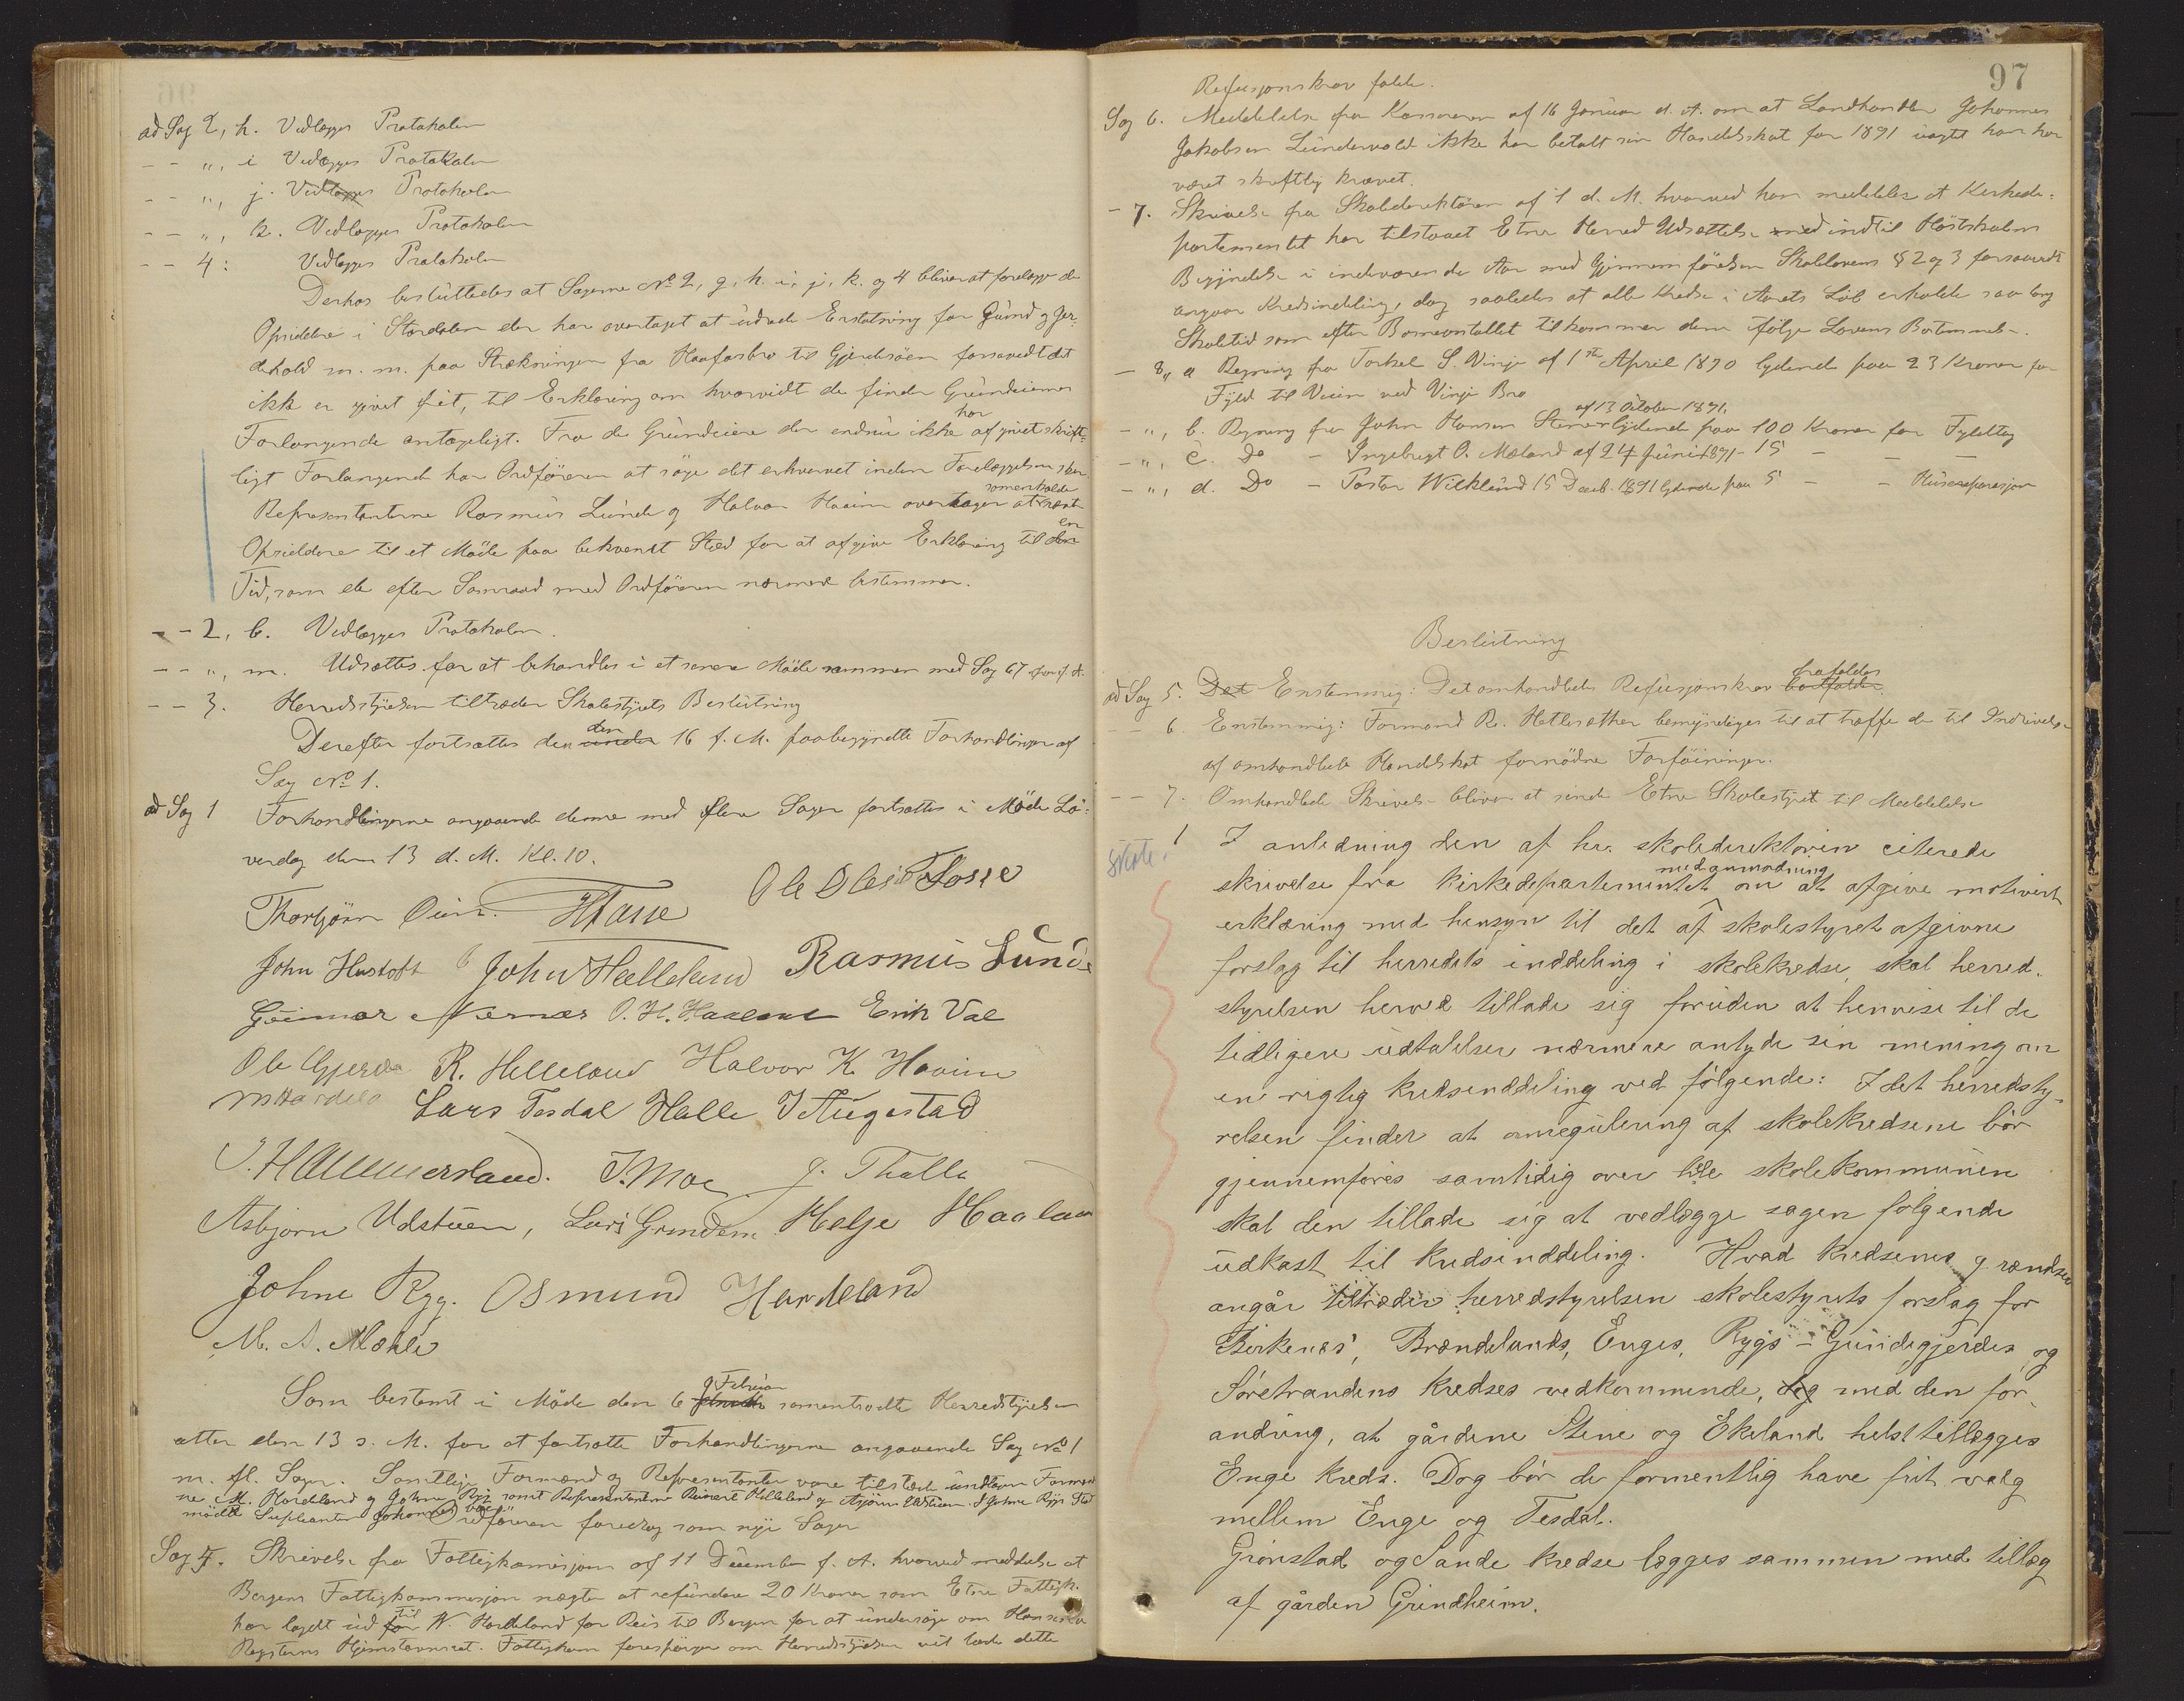 ad Sag 2, h. Vedlægges Protokolen
- - ", i Vedlægges Protokolen
- - ", j. Vedlægges Protokolen
- - ", k. Vedlægges Protokolen
- - 4: Vedlægges Protokolen
Derhos besluttedes at Sagerne No 2, g, h. i, j, k. og 4 bliver at forelægge de
Opsiddere i Stordalen der har overtaget at udrede Erstatning for Grund og Gjer-
dehold m. m. paa Strækningen fra Haafosbro til Gjerdesöen forsaavidt det
ikke er givet frit, til Erklæring om hvorvidt de finder Grundeiernes
Forlangende antageligt. Fra de Grundeiere der endnu ikke har afgivet skrift-
ligt Forlangende har Ordföreren at söge det erhvervet inden Forelæggelsen sker
Repræsentanterne Rasmus Lunde og Halvor Haaim overtager at sammenkalde
Opsiddere til et Möde paa bekvemt Sted for at afgive Erklæring til en
Tid, som de efter Samraad med Ordföreren nærmere bestemmer.
- - 2, b. Vedlægges Protokolen.
- - ", m. Udsættes for at behandles i et senere Möde sammen med Sag 67 for f. A.
- - 3. Herredsstyrelsen tiltræder Skolestyrets Beslutning
Derefter fortsattes den den 16 f. M. paabegyndte Forhandlinger af
Sag No 1.
ad Sag 1 Forhandlingerne angaaende denne med flere Sager fortsættes i Möde Lö-
verdag den 13 d. M. Kl. 10.
Thorbjörn HFasse Ole Olsen Fosse
John Hustoft John Helleland Rasmus Lunde
Gunnar Nernæs O. H. Haaland Erik Val
Ole Gjerde R. Helleland Halvor K. Haaim
M Hardela Lars Tesdal Halle J Augestad
J. Hammersland. J. Moe J. Thalle
Asbjørn Udstuen, Lars Grindem Helje Haaland
Johne Rygg. Osmund Hardeland
M. A. Mæhle
Som bestemt i Möde den 6 Februar samentraadte Herredsstyrelsen
atter den 13 s. M. for at fortsætte Forhandlingerne angaaende Sag No 1
m. fl. Sager. Samtlige Formænd og Repræsentanter vare tilstede undtagen Formænd
ne M. Hardeland og Johne Rygg samt Repræsentanterne Reinert Helleland og Asjörn Udstuen. I Johne Ryggs Sted
mödte Suppleanten Johannes
Ordföreren foredrog som nye Sager
Sag 5. Skrivelse fra Fattigkomisjon af 11 December f. A. hvorved meddeles at
Bergens Fattigkommisjon nægter at refundere 20 Kroner som Etne Fattigk.
har lagdt ud til N. Hardeland for Reis til Bergen for at undersöge om Hans
Hjemstavnsret. Fattigkom forespörger om Herredsstyrelsen vil lade dette
97
Refusjonskrav falde.
Sag 6. Meddelelse fra Kassereren af 16 Januar d. A. om at Landhandler Johannes
Jakobsen Lundervold ikke har betalt sin Handelsskat for 1891 uagtet han har
været skriftlig krævet.
- 7. Skrivelse fra Skoledirektören af 1 d. M. hvorved han meddeler at Kirkede-
partementet har tilstaaet Etne Herred Udsættelse indtil Höstskolens
Begyndelse i indeværende Aar med Gjennemförelsen Skolelovens § 2 og 3 forsaavidt
angaar Kredsindeling, dog saaledes at alle Kredse i Aarets Löb erholde saa lang
Skoletid som efter Børneantallet tilkommer dem ifölge Lovens Bestemmelse.
- 8,, a Regning fra Torkel S. Vinje af 1ste April 1890 lydende paa 23 Kroner for
Fyld til Veien ved Vinje Bro
- ", b. Regning fra John Hansen Stene af 13 October 1891. lydende paa 100 Kroner for Fyldtag
- ", c. Do - Ingebrigt O. Mæland af 24 Juni 1891 - 15 - - -
- ", d. Do - Pastor Wicklund 15 Decb. 1891 lydende paa 5 - - Husreparasjon
Beslutning
ad Sag 5. Det Enstemmig: Det omhandlede Refusjonskrav frafaldes
- - 6 Enstemmig: Formand R. Hetlesæther bemyndiges til at træffe de til Inddrivelse
af omhandlede Handelskat fornödne Forföininger.
- - 7. Omhandlede Skrivelse bliver at sende Etne Skolestyret til Meddelelse
Skole. 1 I anledning den af hr. skoledirektören citerede
skrivelse fra kirkedepartementet med anmodning om at afgive motivert
erklæring med hensyn til det af skolestyret afgivne
forslag til herredets inddeling i skolekredse, skal herred-
styrelsen herved tillade sig foruden at henvise til de
tidligere udtalelser nærmere antyde sin mening om
en rigtig kredsinddeling ved følgende: I det herredsty-
relsen finder at omregulering af skolekredsene bör
gjennemföres samtidig over hele skolekommunen
skal den tillade sig at vedlægge sagen følgende
udkast til kredsinddeling. Hvad kredsenes grændser
angår tiltræder herredstyrelsen skolestyrets forslag for
Birkenes', Brændelands, Enges, Rygs - Gundegjerdes og
Sörstrandens kredses vedkommende, dog med den for-
andring, at gårdene Stene og Ekeland helst tillægges
Enge kreds. Dog bör de formentlig have frit valg
mellem Enge og Tesdal.
Grönstad og Sande kredse lægges sammen med tillæg
af gården Grindheim.